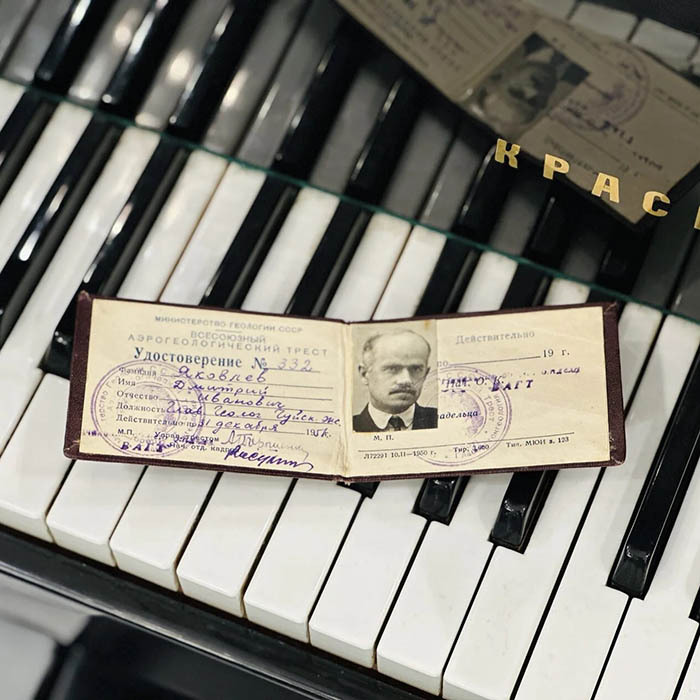 КРАС
МИНИСТЕРСТВО ГЕОЛОГИИ СССР
ВСЕСОЮЗНЫЙ
АЭРОГЕОЛОГИЧЕСКИЙ ТРЕСТ
Удостоверение № 332
Фамилия Яковлев
Имя Дмитрий
Отчество Иванович
Должность Глав. Геолог
Действительно 31 декабря 195
М.П. Управ. трестом
Нач. отд. кадров
ВАГТ
Действительно
19 г.
ВАГТ
владельца
М. П.
Л72291 10.II—1950 г. Тир. Тип. МЮИ з. 123